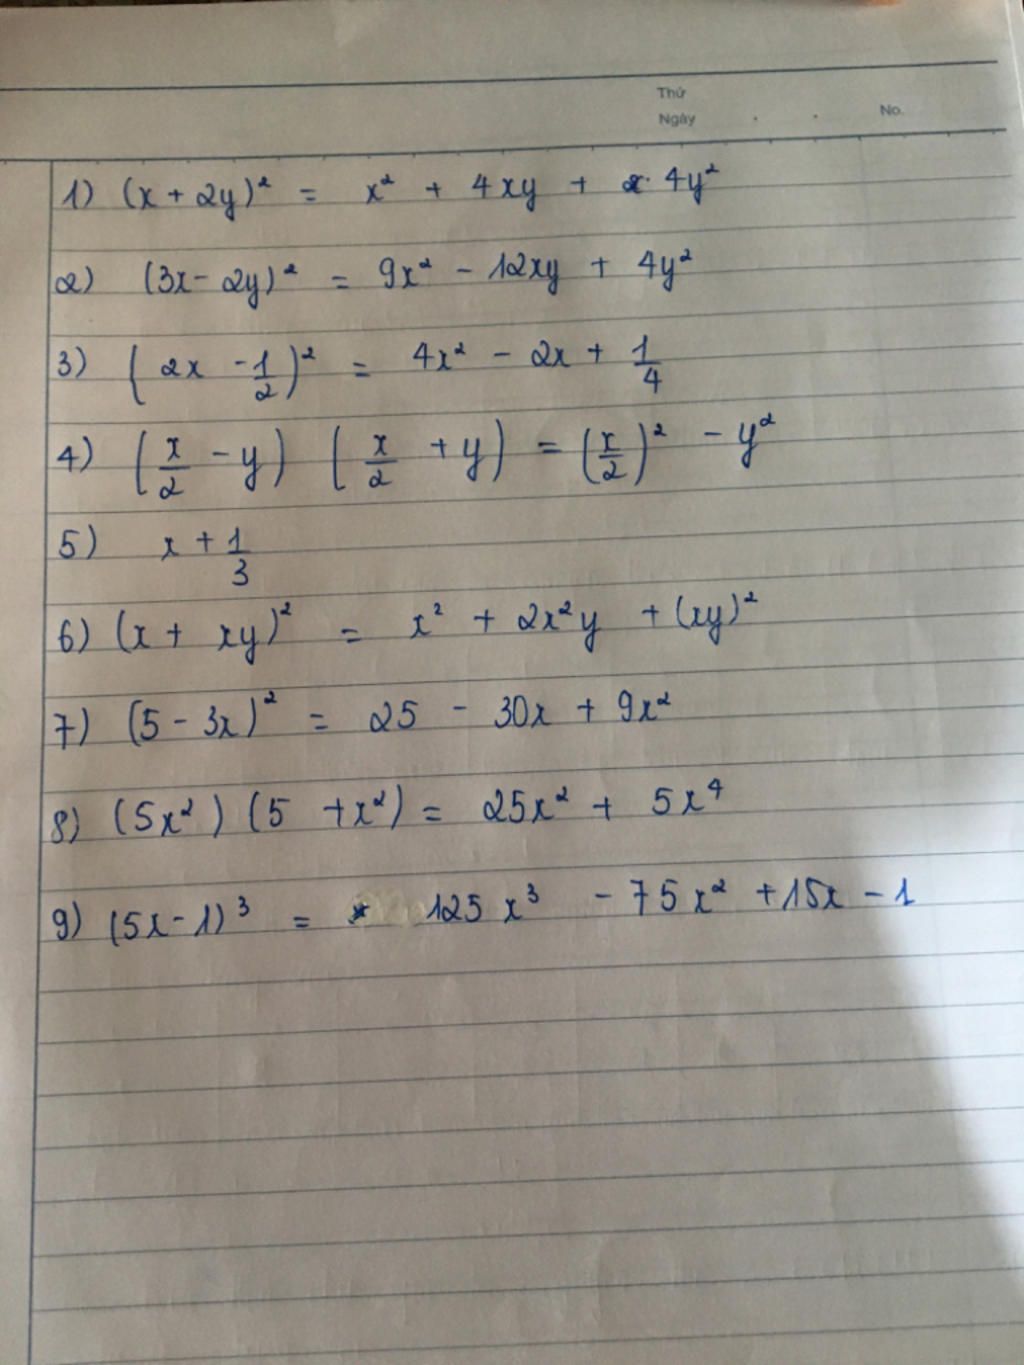 Thứ
Ngày . . No.
1) (x + 2y)² = x² + 4xy + 4y²
2) (3x - 2y)² = 9x² - 12xy + 4y²
3) (2x - 1/2)² = 4x² - 2x + 1/4
4) (x/2 - y) (x/2 + y) = (x/2)² - y²
5) x + 1/3
6) (x + xy)² = x² + 2x²y + (xy)²
7) (5 - 3x)² = 25 - 30x + 9x²
8) (5x²) (5 + x²) = 25x² + 5x⁴
9) (5x - 1)³ = 125x³ - 75x² + 15x - 1